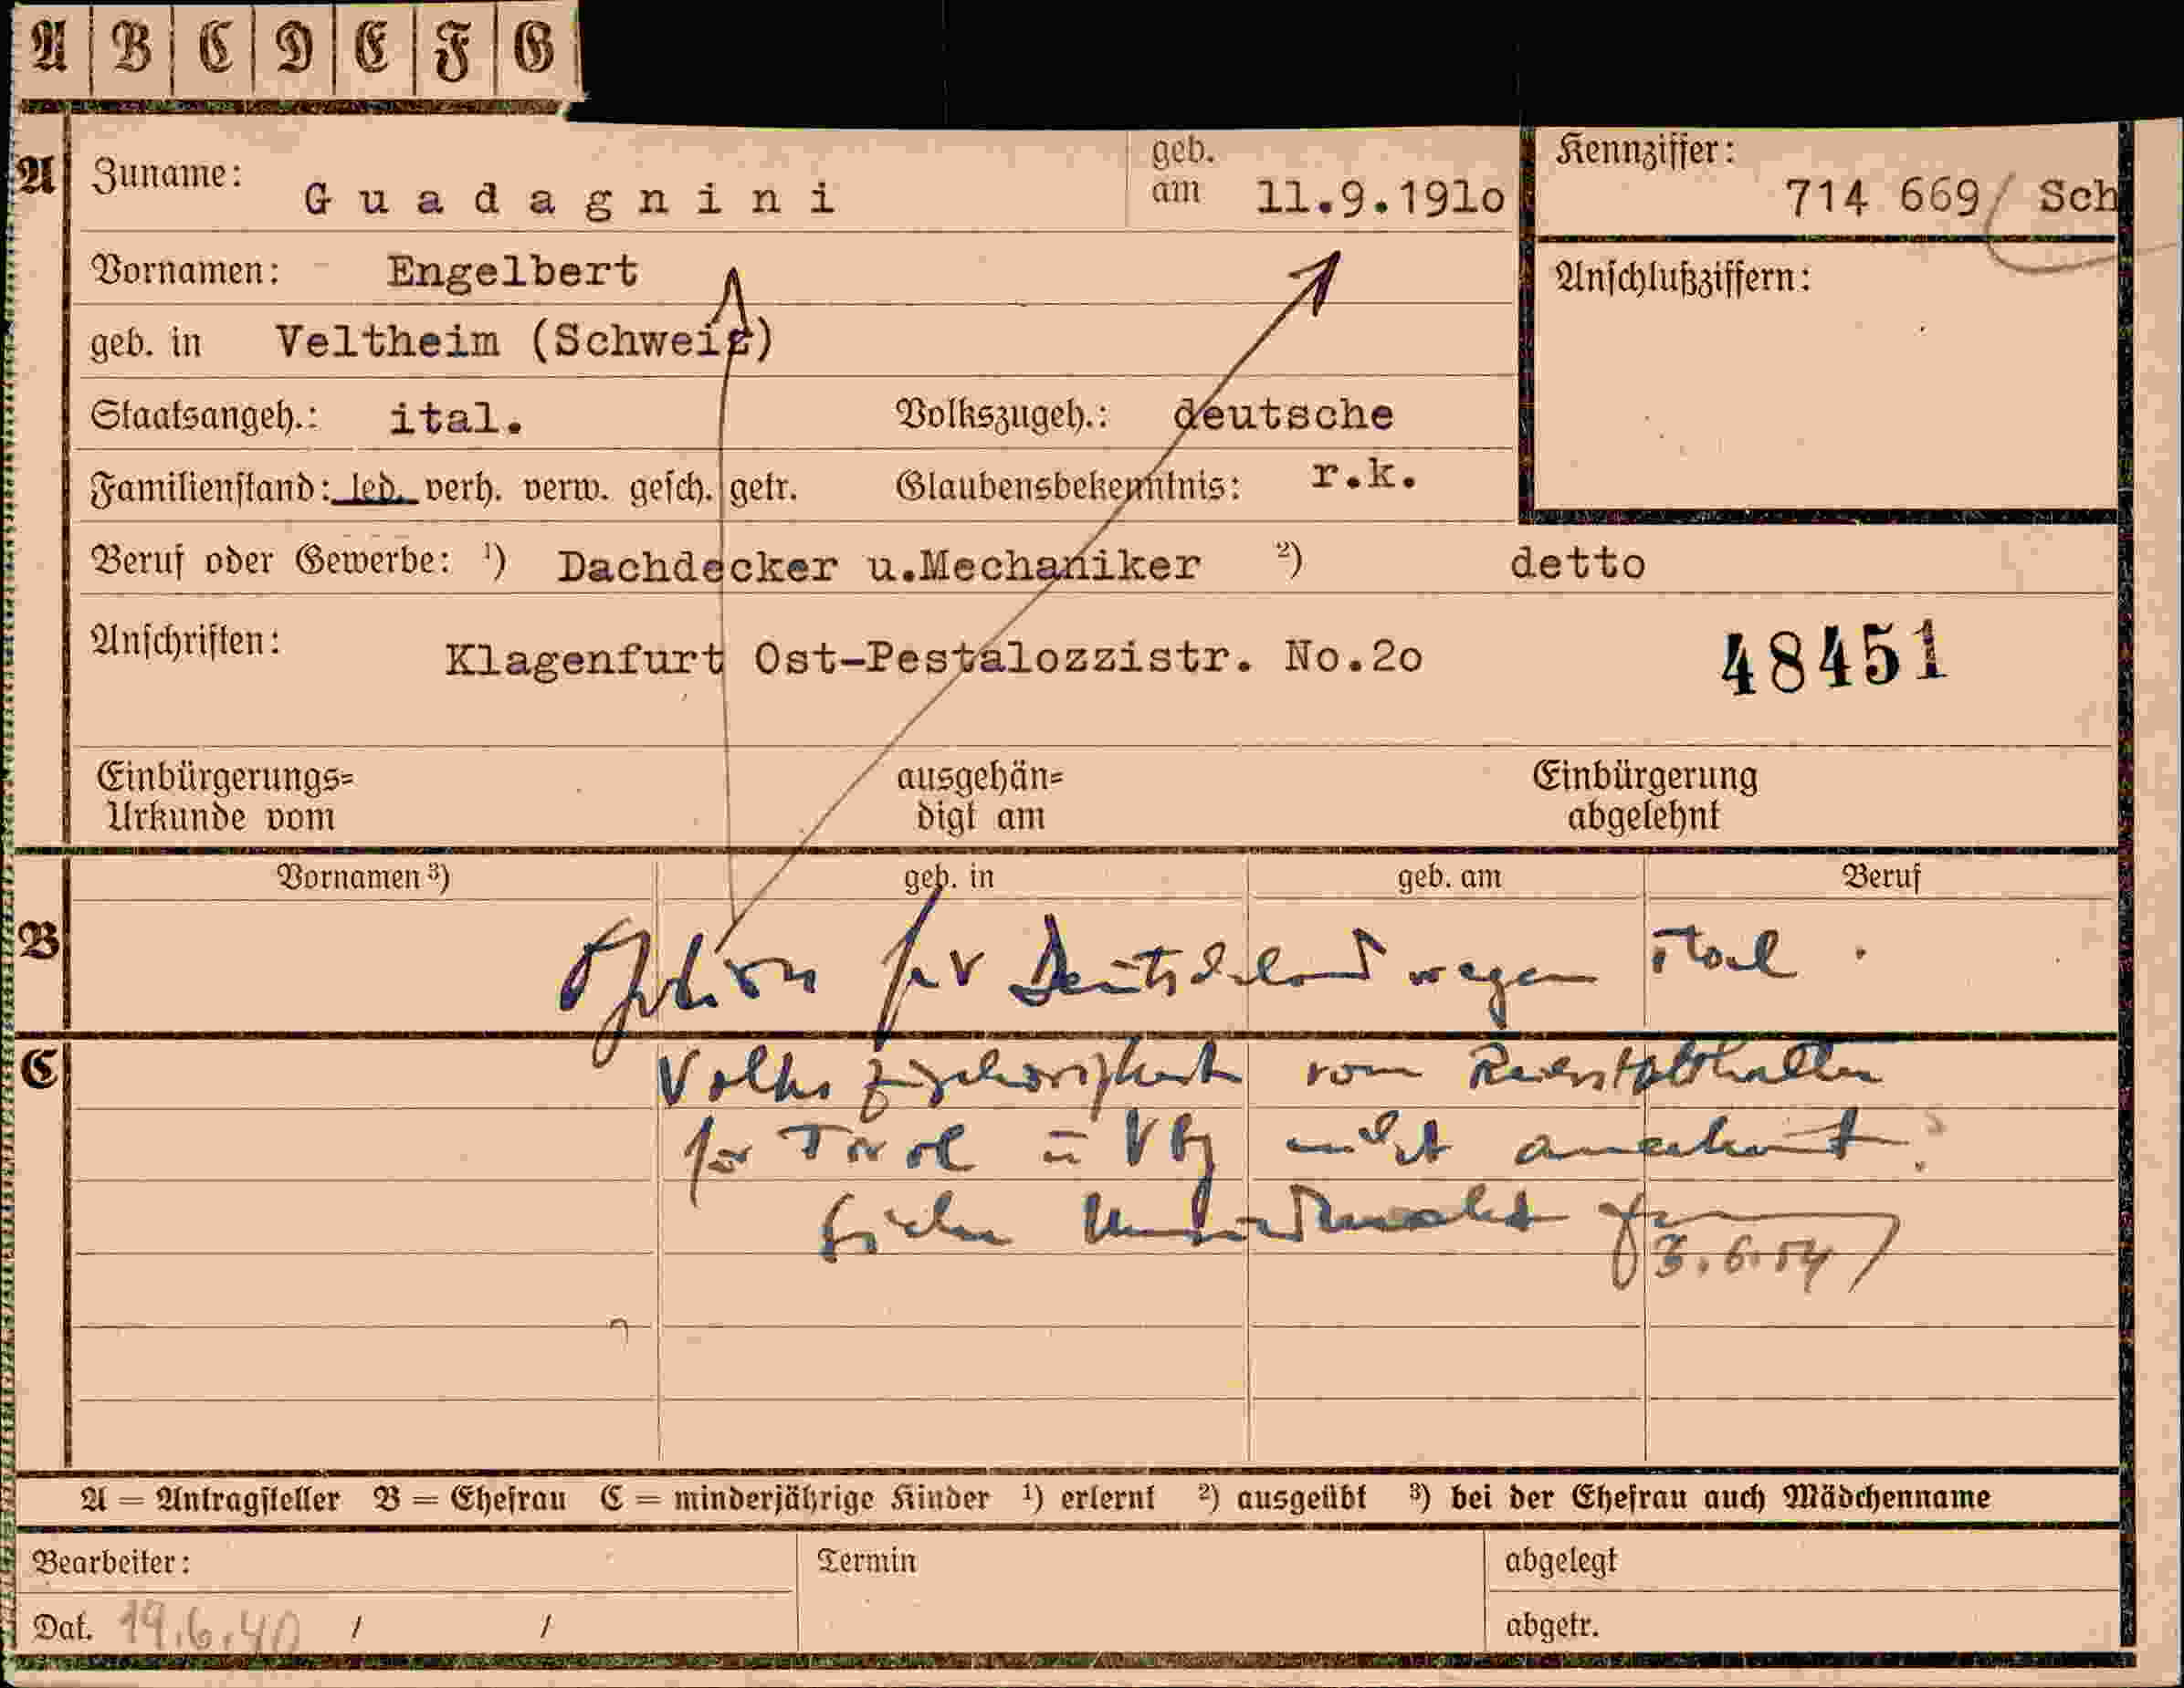 A B C D E F G
A Zuname: Guadagnini geb. am 11.9.191o Kennziffer: 714 669/ Sch
Vornamen: Engelbert Anschlußziffern:
geb. in Veltheim (Schweiz)
Staatsangeh.: ital. Volkszugeh.: deutsche
Familienstand: led. verh. verw. gesch. getr. Glaubensbekenntnis: r.k.
Beruf oder Gewerbe: ¹) Dachdecker u.Mechaniker ²) detto
Anschriften: Klagenfurt Ost-Pestalozzistr. No.2o 48451
Einbürgerungs= ausgehän= Einbürgerung
Urkunde vom digt am abgelehnt
Vornamen ³) geb. in geb. am Beruf
B Option für Deutschland wegen ital.
C Volkszugehörigkeit vom Reichsstatthalter
für Tirol u Vbg nicht anerkannt.
3.6.54
A = Antragsteller B = Ehefrau C = minderjährige Kinder ¹) erlernt ²) ausgeübt ³) bei der Ehefrau auch Mädchenname
Bearbeiter: Termin abgelegt
Dat. 19.6.40 / / abgetr.